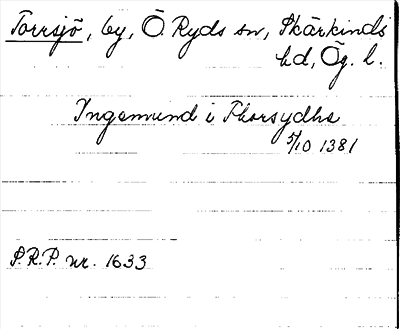 Torrsjö, by, Ö. Ryds sn, Skärkinds
hd, Ög. l.
Ingemund i Thorsydhs
5/10 1381
S.R.P. nr. 1633